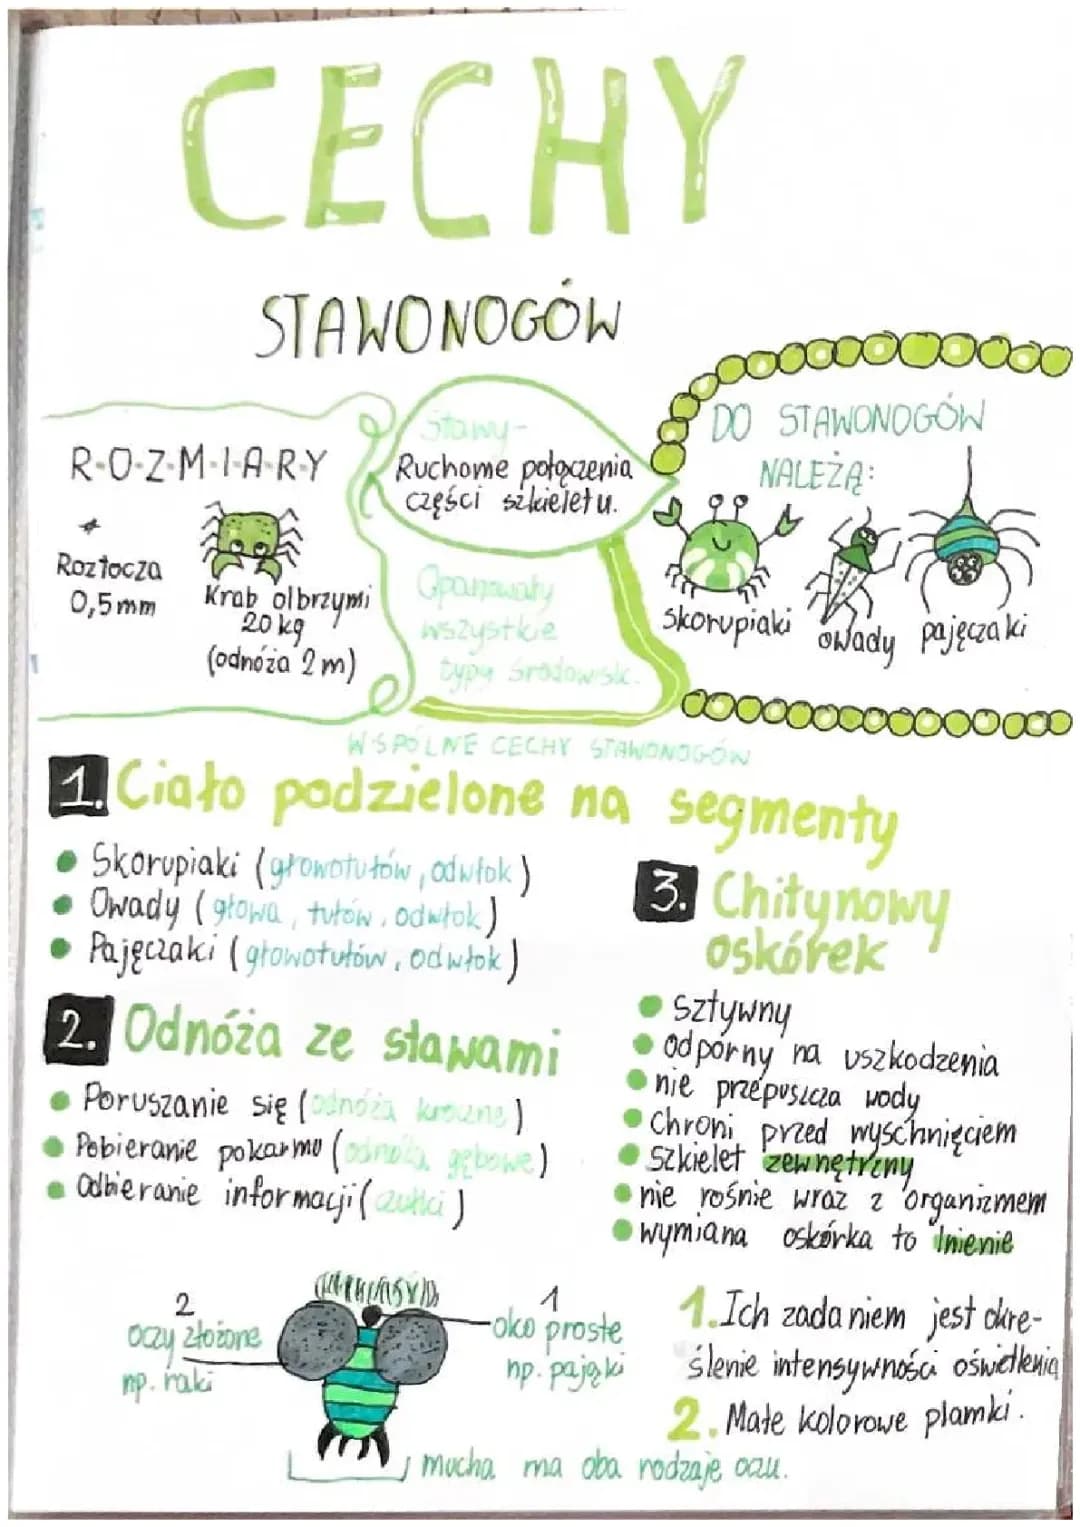 CECHY
STAWONOGÓW
R·O·Z·M·I·A·R·Y
Roztocza
0,5mm
Krab olbrzymi
20 kg
(odnóża 2m)
Stawy-
Ruchome połączenia
części szkieletu.
Opanowały
wszystkie
typy środowisk.
DO STAWONOGÓW
NALEŻĄ:
skorupiaki
owady
pajęczaki
WSPÓLNE CECHY STAWONOGÓW
1. Ciało podzielone na segmenty
Skorupiaki (głowotułów, odwłok)
Owady (głowa, tułów, odwłok)
Pajęczaki (głowotułów, odwłok)
2. Odnóża ze stawami
Poruszanie się (odnóża kroczne)
Pobieranie pokarmu (odnóża gębowe)
Odbieranie informacji (czułki)
3. Chitynowy
oskórek
sztywny
odporny na uszkodzenia
nie przepuszcza wody
Chroni przed wyschnięciem
Szkielet zewnętrzny
nie rośnie wraz z organizmem
wymiana oskórka to lnienie
2
oczy złożone
np. raki
1
oko proste
np. pająki
mucha ma oba rodzaje oczu.
1. Ich zadaniem jest okre-
ślenie intensywności oświetlenia
2. Małe kolorowe plamki.